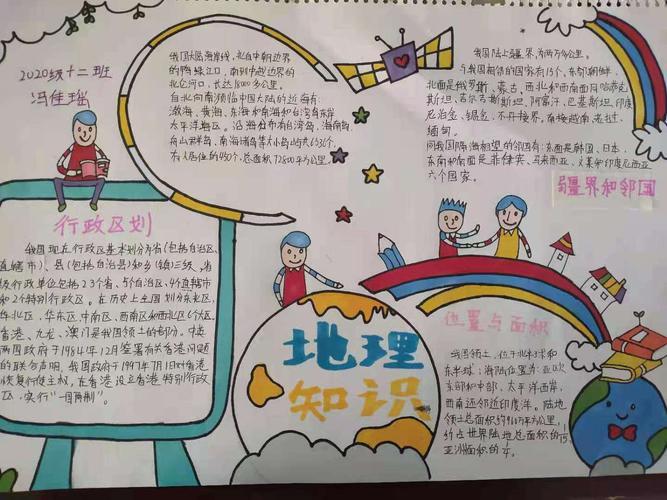 2020级十二班
冯佳瑶
行政区划
我国现在行政区基本划分为省(包括自治区、
直辖市)、县(包括自治县)和乡(镇)三级，省
级行政单位包括23个省、5个自治区、4个直辖市
和2个特别行政区。在历史上全国划分东北区、
华北区、华东区、中南区、西南区和西北区6个大区。
香港、九龙、澳门是我国领土的部分。中英
两国政府于1984年12月签署有关香港问题
的联合声明，我国政府于1997年7月1日对香港
恢复行使主权，在香港设立香港特别行政
区，实行"一国两制"。
我国大陆海岸线，北自中朝边界
的鸭绿江口，南到中越边界的
北仑河口，长达18000多公里。
自北向南濒临中国大陆的近海有：
渤海、黄海、东海和南海和台湾岛东岸
太平洋海区。沿海分布有台湾岛、海南岛、
舟山群岛、南海诸岛等大小岛屿共6536个，
有人居住的450个，总面积72800平方公里。
我国陆上疆界，为两万多公里。
与我国相邻的国家有15个，东邻朝鲜，
北面是俄罗斯、蒙古，西北和西南面同哈萨克
斯坦、吉尔吉斯斯坦、阿富汗、巴基斯坦、印度、
尼泊尔、锡金、不丹接界，南接越南、老挝、
缅甸。
同我国隔海相望的邻国有：东面是韩国、日本，
东南和南面是菲律宾、马来西亚、文莱和印度尼西亚
六个国家。
疆界和邻国
地理
知识
位置与面积
我国领土，位于北半球和
东半球；海陆位置为：亚欧
东部和中部，太平洋西岸，
西南还邻近印度洋。陆地
领土总面积约960万平方公里，
约占世界陆地总面积的1/15，
亚洲面积的1/4。